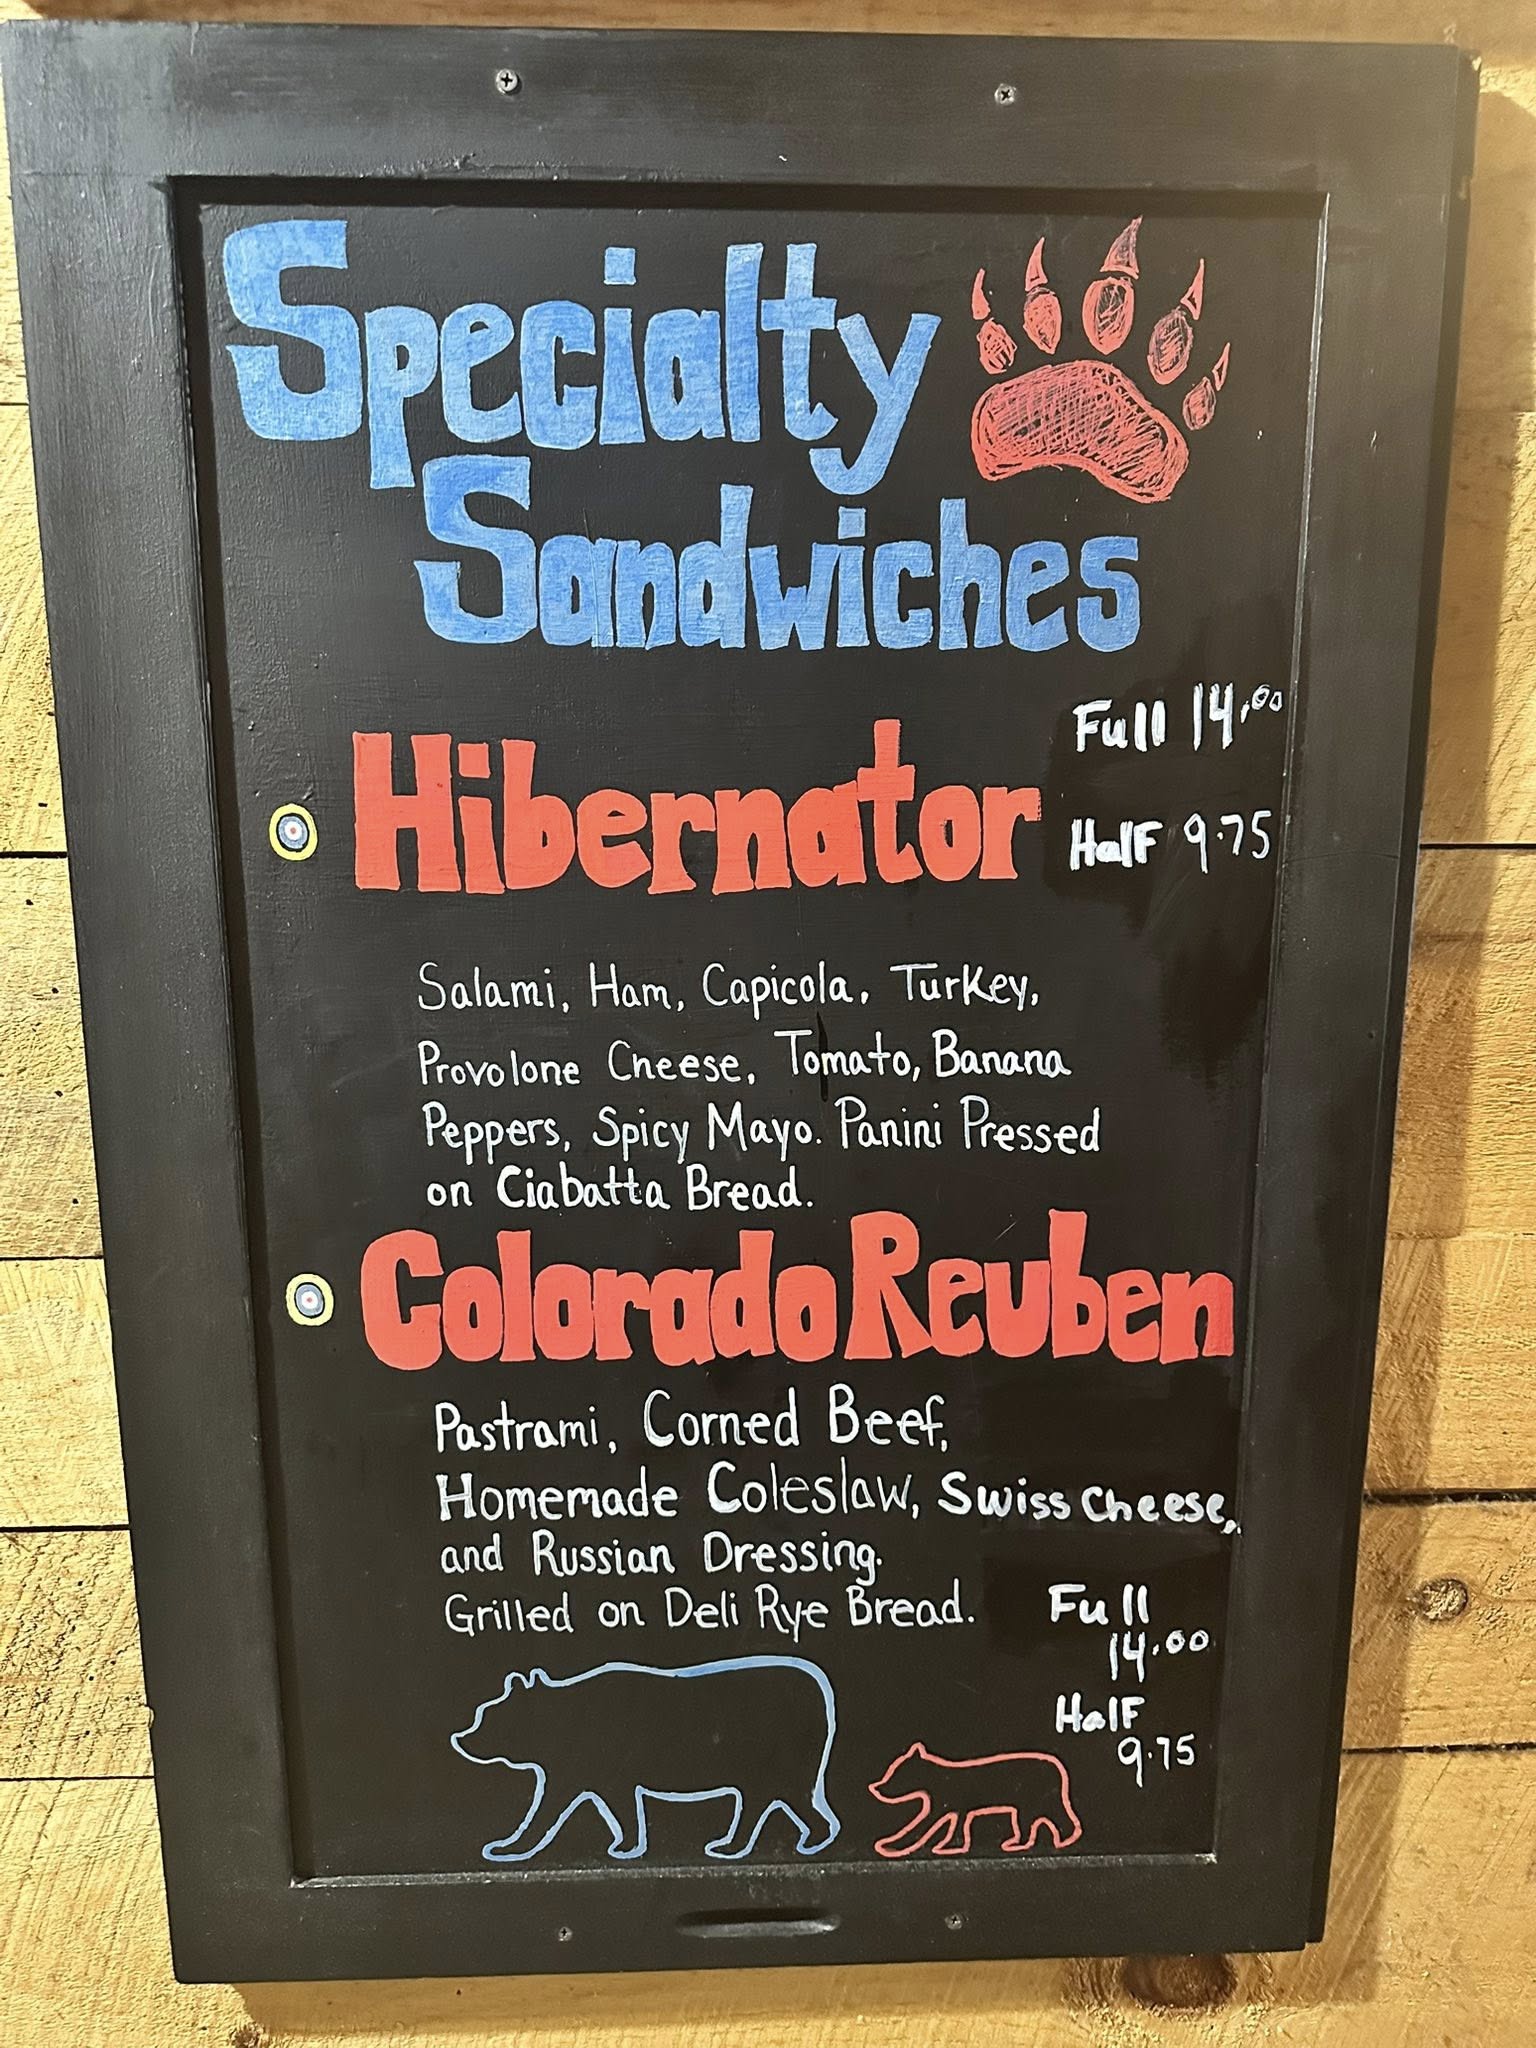 Specialty
Sandwiches
Hibernator
Full 14.00
Half 9.75
Salami, Ham, Capicola, Turkey,
Provolone Cheese, Tomato, Banana
Peppers, Spicy Mayo. Panini Pressed
on Ciabatta Bread.
Colorado Reuben
Pastrami, Corned Beef,
Homemade Coleslaw, Swiss Cheese,
and Russian Dressing.
Grilled on Deli Rye Bread.
Full
14.00
Half
9.75